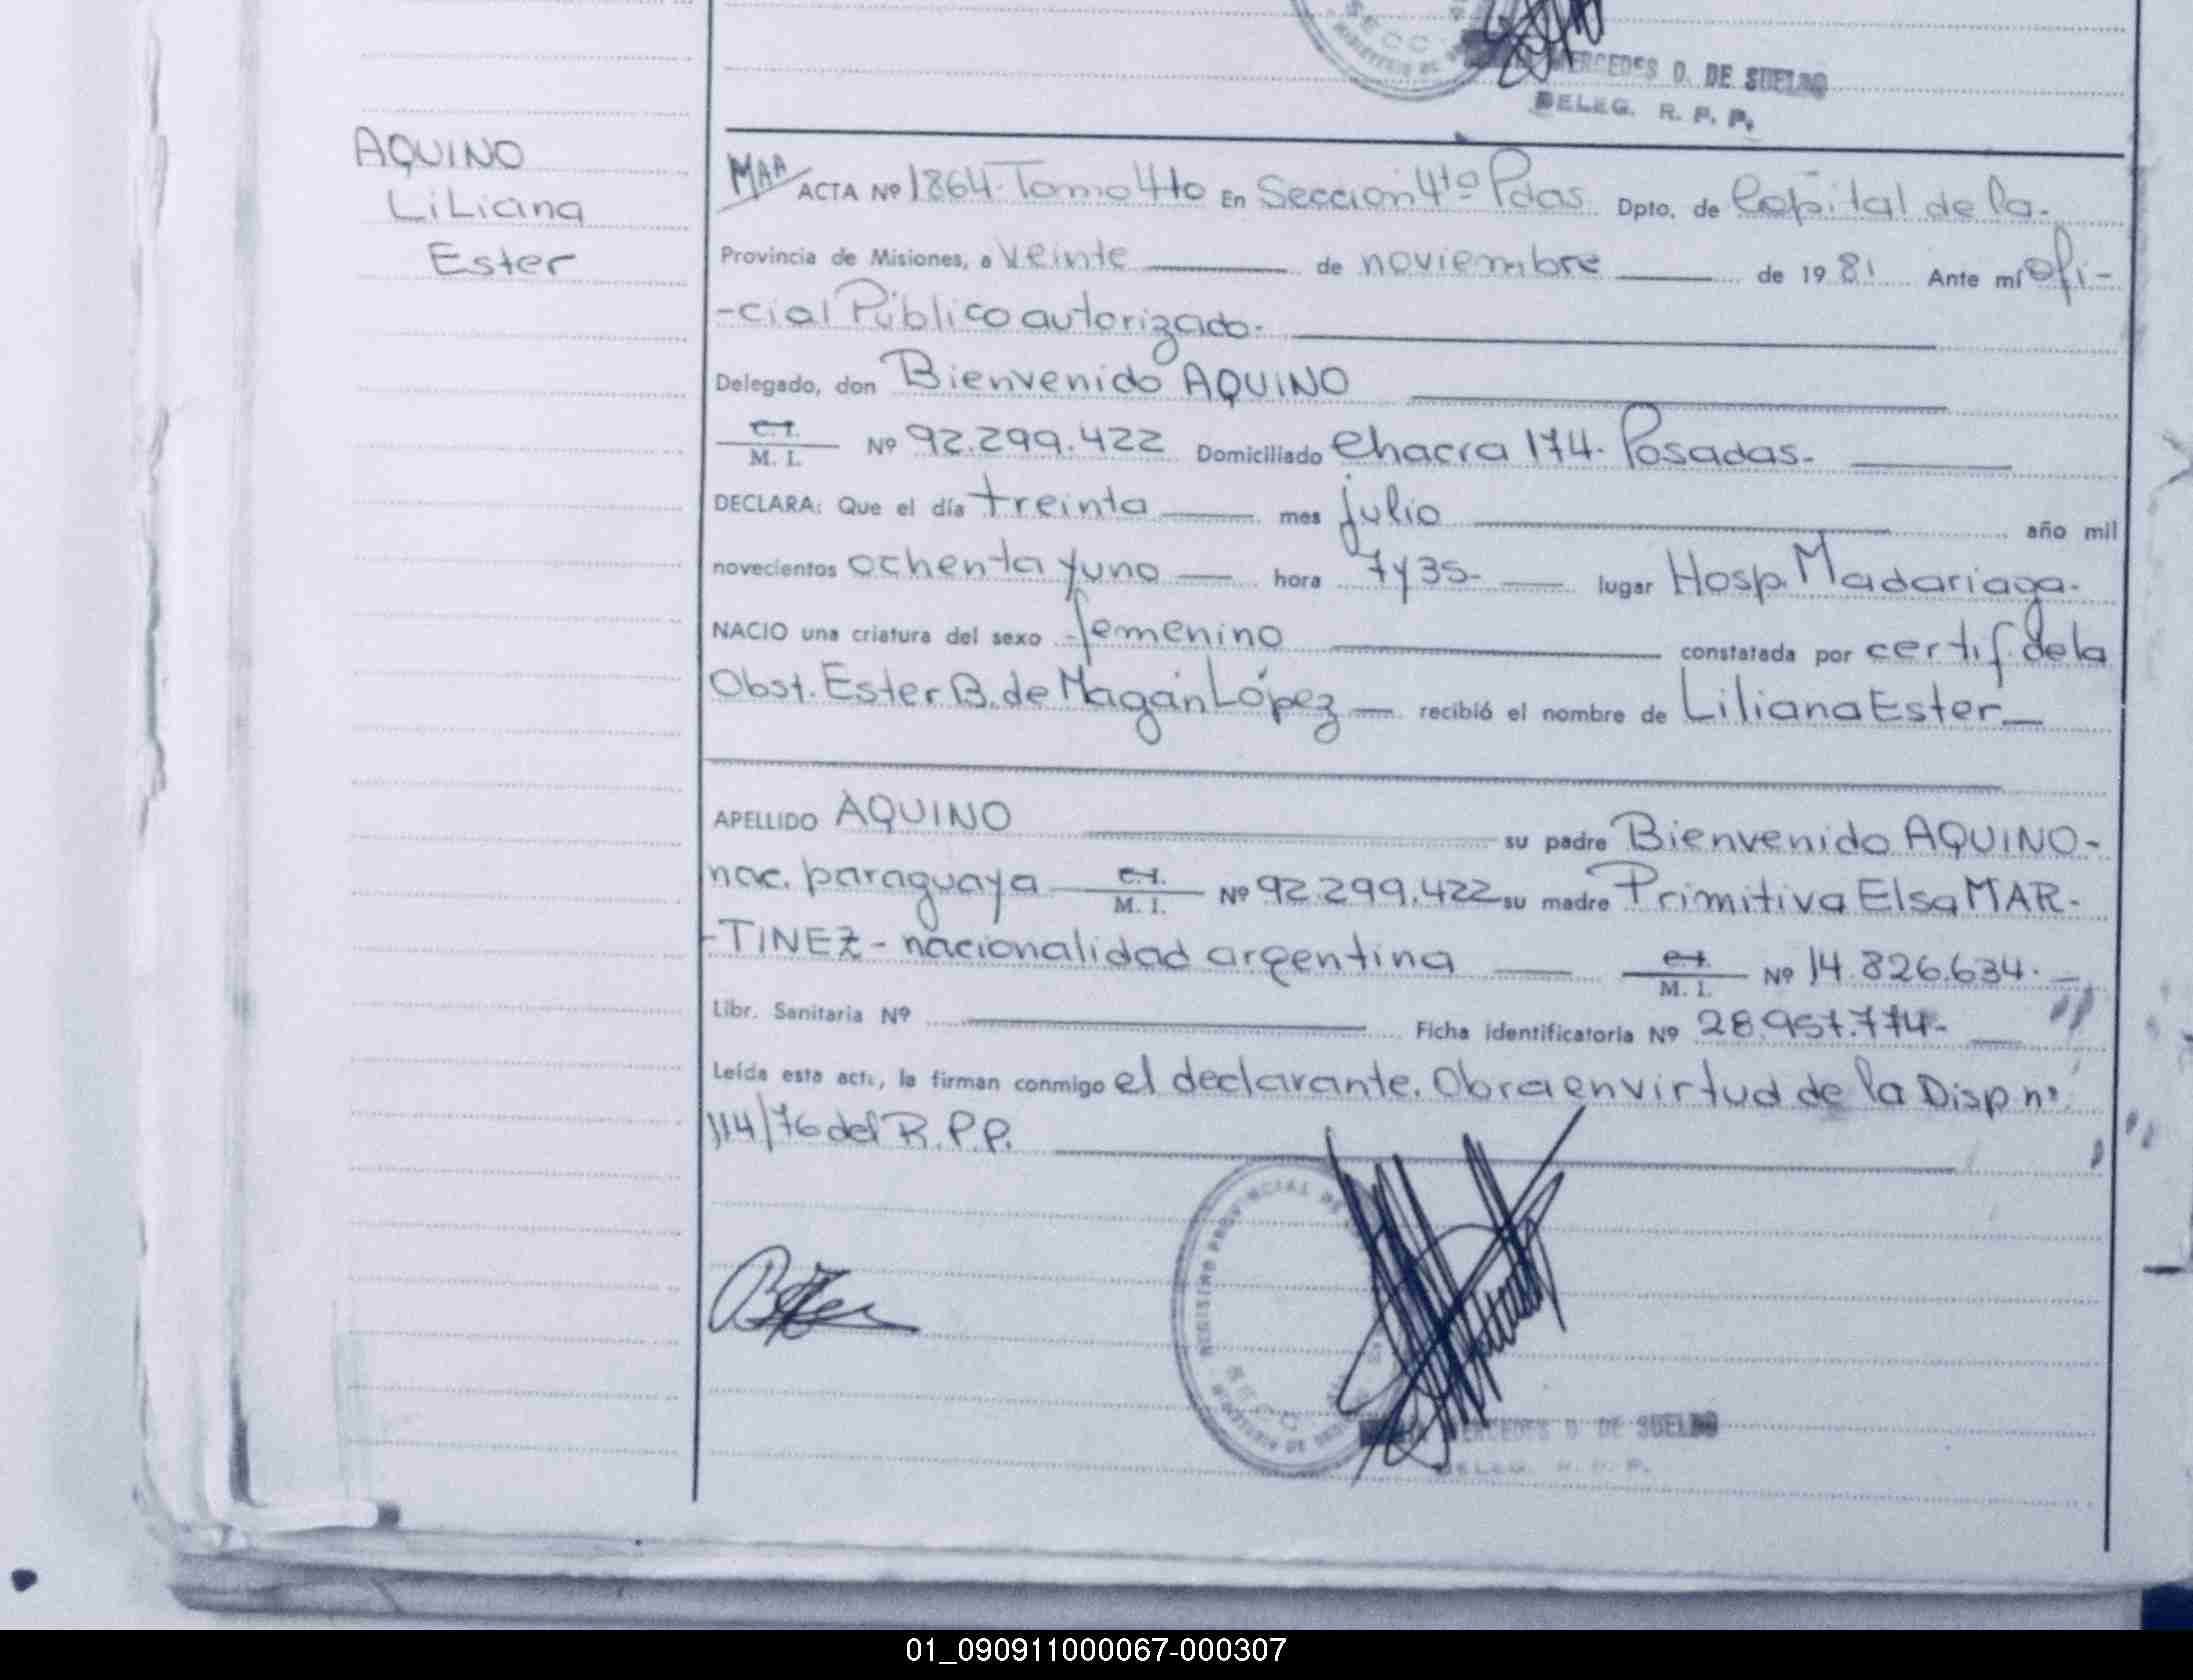 MERCEDES D. DE SUELDO
DELEG. R. P. P.
AQUINO
Liliana
Ester
MAA ACTA Nº 1864-Tomo 4to En Sección 4to Pdas. Dpto. de Capital de la-
Provincia de Misiones, a veinte de noviembre de 1981 Ante mí ofi-
-cial Público autorizado.
Delegado, don Bienvenido AQUINO
C.I. M. I. Nº 92.299.422 Domiciliado Chacra 174. Posadas-
DECLARA: Que el día treinta mes julio año mil
novecientos ochenta y uno hora 7 y 35- lugar Hosp. Madariaga-
NACIO una criatura del sexo femenino constatada por certif. de la
Obst. Ester B. de Magán López recibió el nombre de Liliana Ester
APELLIDO AQUINO su padre Bienvenido AQUINO-
nac. paraguaya C.I. M. I. Nº 92.299.422 su madre Primitiva Elsa MAR-
-TINEZ- nacionalidad argentina C.I. M. I. Nº 14.826.634.
Libr. Sanitaria Nº Ficha identificatoria Nº 28.957.774-
Leída esta acta, la firman conmigo el declarante. Obra en virtud de la Disp nº
114/76 del R.P.P.
REGISTRO PROVINCIAL DE
MERCEDES D. DE SUELDO
DELEG. R. P. P.
01_090911000067-000307